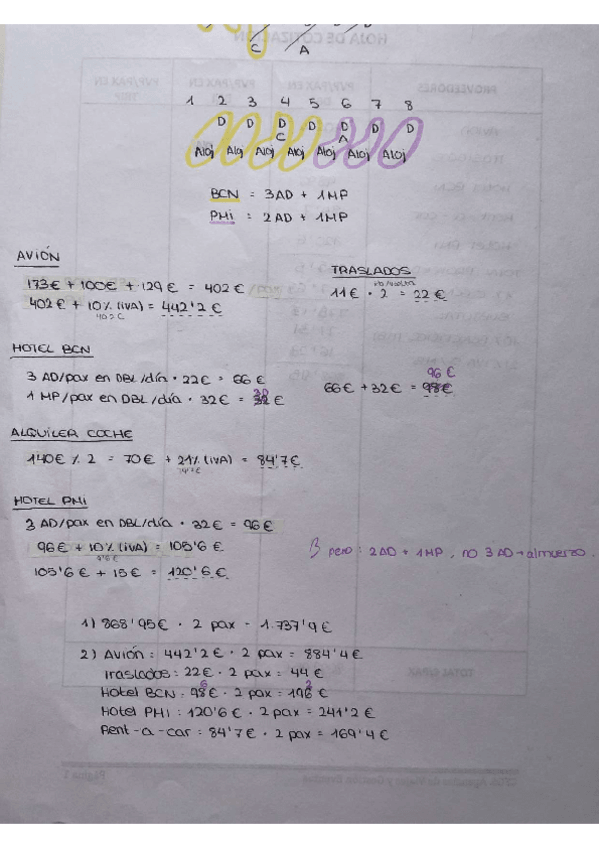 C A
1 2 3 4 5 6 7 8
D D D D D D D
C A
Aloj Aloj Aloj Aloj Aloj Aloj Aloj
BCN = 3AD + 1MP
PMi = 2AD + 1MP
AVIÓN
173€ + 100€ + 129€ = 402€
402€ + 10% (iVA) = 442'2€
TRASLADOS
11€ · 2 = 22€
HOTEL BCN
3 AD/pax en DBL/día · 22€ = 66€
1 MP/pax en DBL/día · 32€ = 32€
96€
66€ + 32€ = 98€
ALQUILER COCHE
140€ % 2 = 70€ + 21% (iVA) = 84'7€
HOTEL PMi
3 AD/pax en DBL/día · 32€ = 96€
96€ + 10% (iVA) = 105'6€
9'6€
105'6€ + 15€ = 120'6€
pero : 2AD + 1MP, no 3AD + almuerzo.
1) 868'95€ · 2 pax = 1.737'9€
2) Avión : 442'2€ · 2 pax = 884'4€
Traslados : 22€ · 2 pax = 44€
Hotel BCN : 98€ · 2 pax = 196€
Hotel PMi : 120'6€ · 2 pax = 241'2€
Rent-a-car : 84'7€ · 2 pax = 169'4€